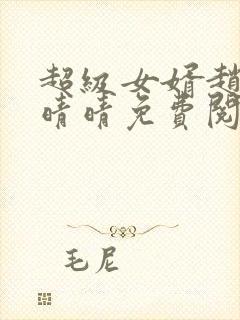 超级女婿趙
晴晴免費閱
毛尼